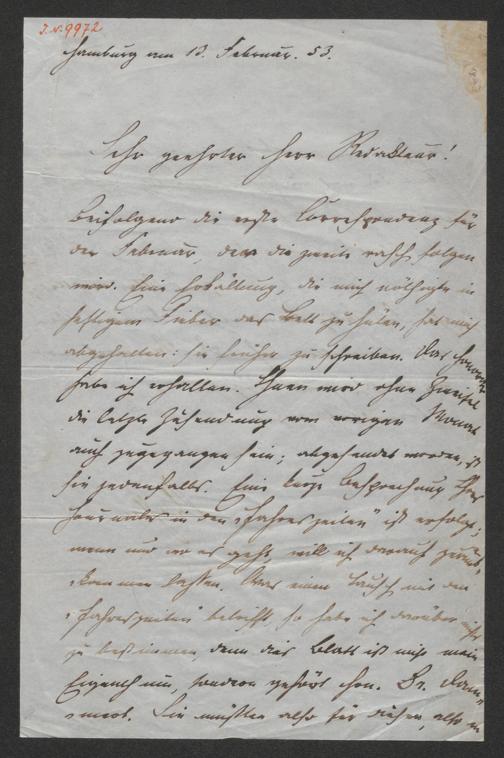 J.N. 9972
Hamburg am 13. Februar. 53.
Sehr geehrter Herr Redakteur!
Beifolgend die erste Correspondenz für
den Februar, der die zweite rasch folgen
wird. Eine Erkältung, die mich nöthigte in
heftigem Fieber das Bett zu hüten, hat mich
abgehalten: sie früher zu schreiben. Das Honorar
habe ich erhalten. Ihnen wird ohne Zweifel
die letzte Zusendung vom vorigen Monat
auch zugegangen sein; abgesendet worden, ist
sie jedenfalls. Eine kurze Besprechung Ihres
Journales in den „Jahreszeiten" ist erfolgt;
wenn und wo es geht, will ich darauf zurück-
kommen lassen. Was einen Tausch mit den
„Jahreszeiten" betrifft, so habe ich darüber nicht
zu bestimmen, denn dies Blatt ist nicht mein
Eigenthum, sondern gehört Hrn. Dr.
Sie müßten also für diesen, also